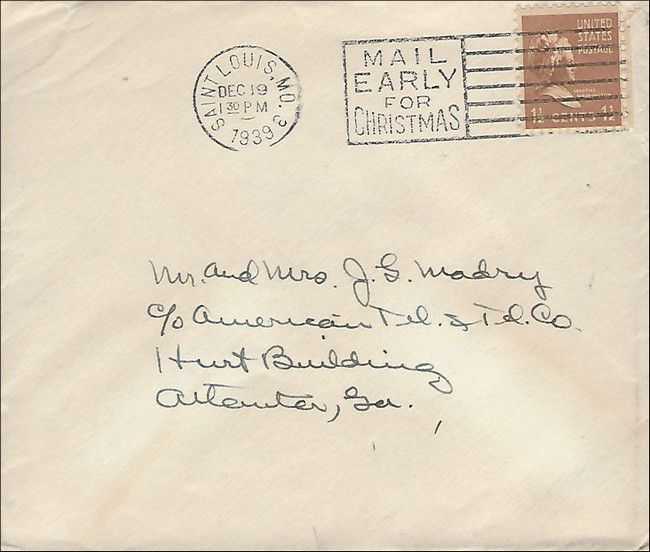 SAINT LOUIS, MO.
DEC 19
1 30 PM
1939
MAIL
EARLY
FOR
CHRISTMAS
UNITED
STATES
POSTAGE
MARTHA
WASHINGTON
1½ CENTS 1½
Mr. and Mrs. J. G. Madry
c/o American Tel. & Tel. Co.
1 Hurt Building
Atlanta, Ga.